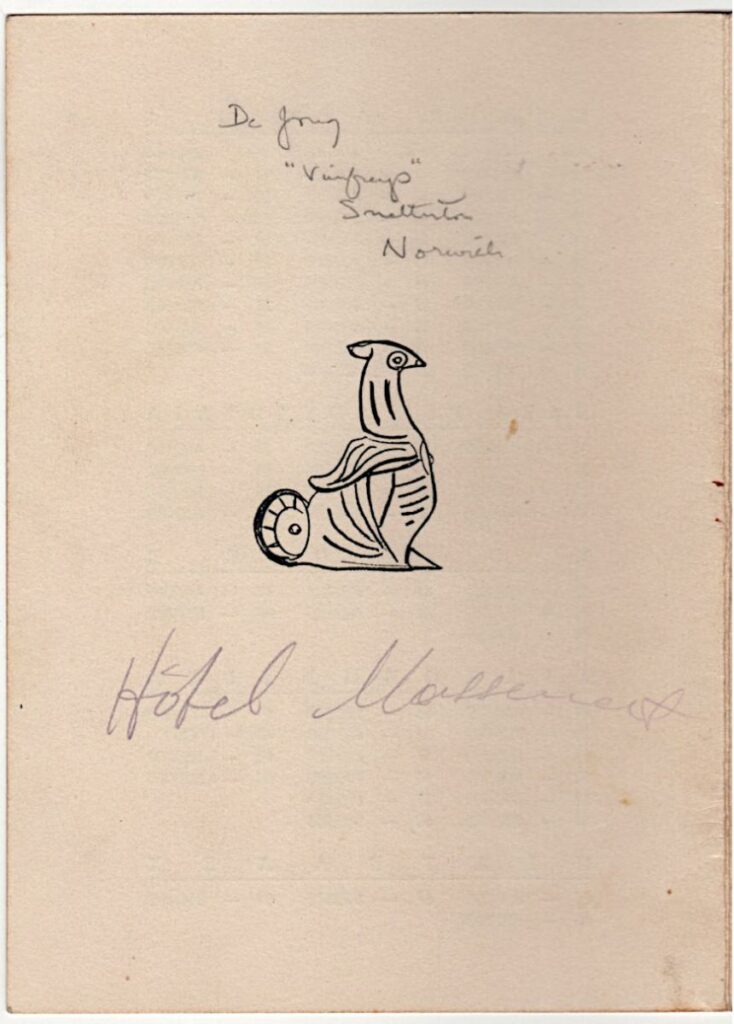 De Jong
"Vinfreys"
Snetterton
Norwich
Hôtel Massenet